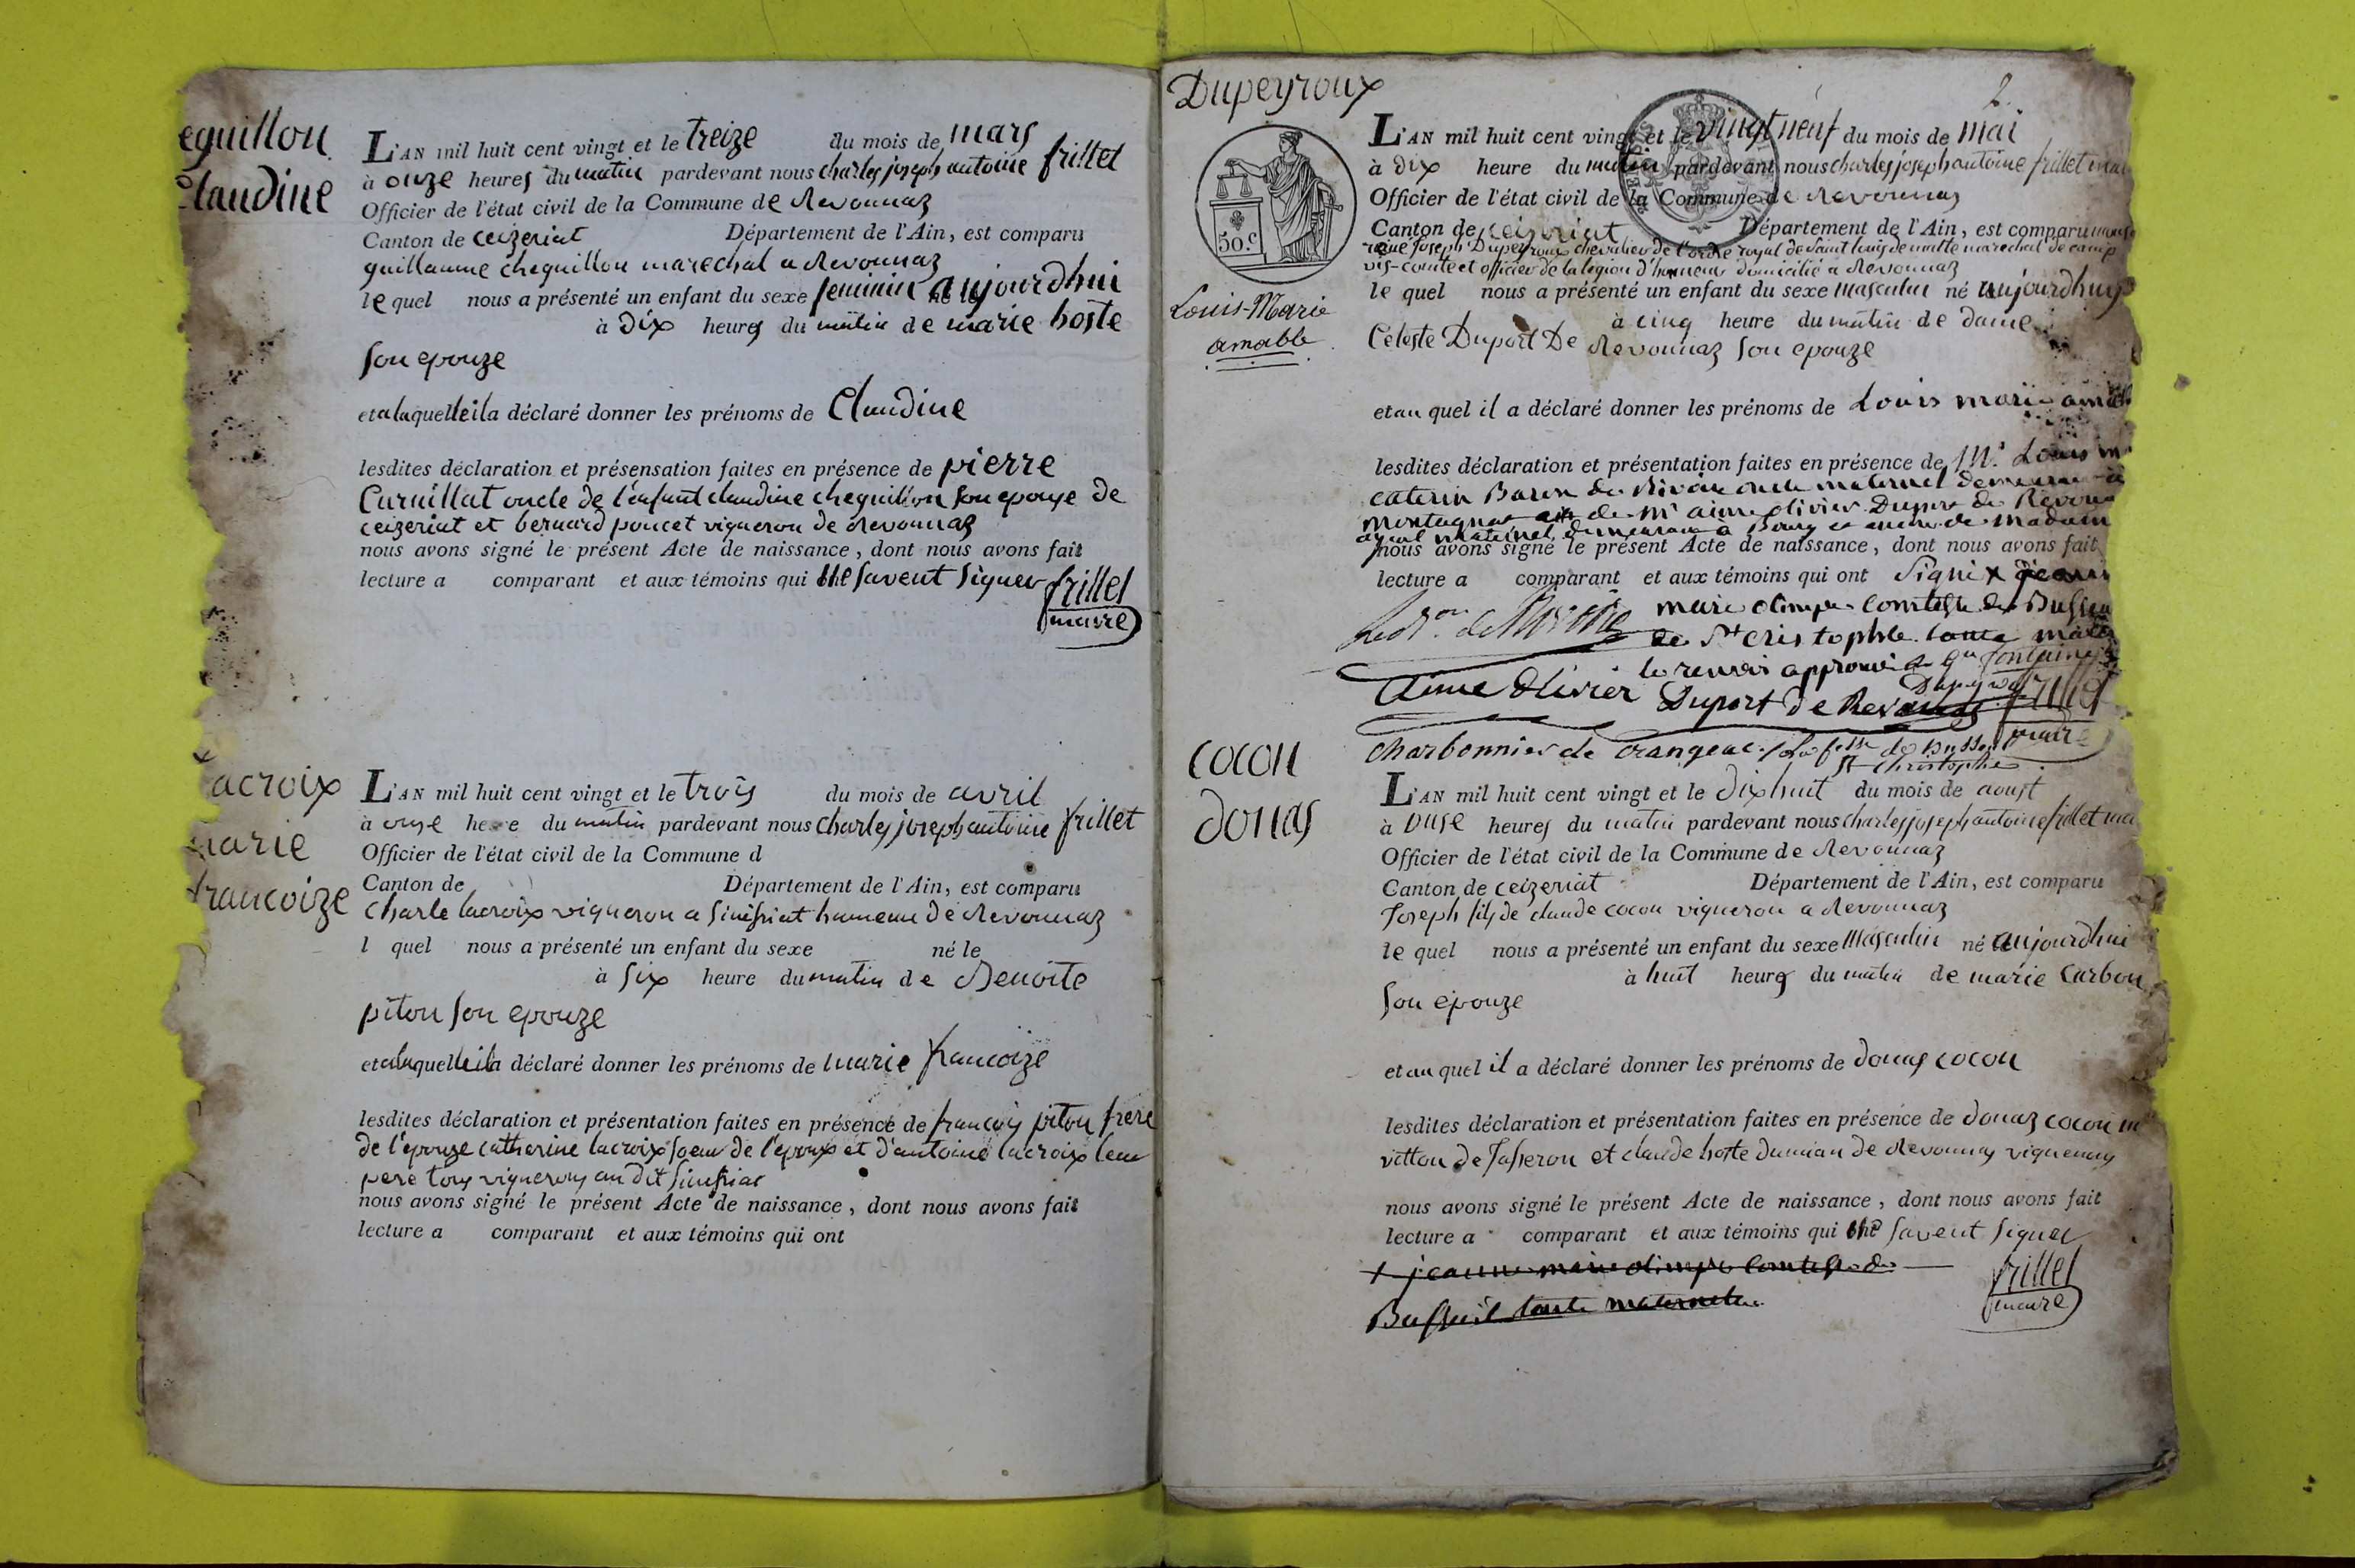 eguillon
Claudine
L'AN mil huit cent vingt et le treize du mois de mars
à onze heures du matin pardevant nous charles joseph antoine frillet
Officier de l'état civil de la Commune de Revonnaz
Canton de ceizeriat Département de l'Ain, est comparu
guillaume cheguillon marechal a Revonnaz
lequel nous a présenté un enfant du sexe feminin né le aujourdhui
à dix heures du matin de marie hoste
son epouze
et a laquelle il a déclaré donner les prénoms de Claudine
lesdites déclaration et présensation faites en présence de pierre
Curnillat oncle de l'enfant claudine cheguillon son epouse de
ceizeriat et bernard poncet vigneron de Revonnaz
nous avons signé le présent Acte de naissance, dont nous avons fait
lecture a comparant et aux témoins qui ne savent signer frillet
maire
acroix
marie
francoize
L'AN mil huit cent vingt et le trois du mois de avril
à onze heure du matin pardevant nous charles joseph antoine frillet
Officier de l'état civil de la Commune d
Canton de Département de l'Ain, est comparu
Charle lacroix vigneron a Sinissiat hameau de Revonnaz
l quel nous a présenté un enfant du sexe né le
à six heure du matin de Benoite
piton son epouze
et a laquelle il a déclaré donner les prénoms de marie francoize
lesdites déclaration et présentation faites en présence de francois piton frere
de l'epouze catherine lacroix soeur de l'epoux et d'antoine lacroix leur
pere tous vignerons au dit Sinissiat
nous avons signé le présent Acte de naissance, dont nous avons fait
lecture a comparant et aux témoins qui ont
Dupeyroux
2
50.c
Louis-Marie
amable
L'AN mil huit cent vingt et le vingt neuf du mois de mai
à dix heure du matin pardevant nous charles joseph antoine frillet mai
Officier de l'état civil de la Commune de Revonnas
Canton de ceizeriat Département de l'Ain, est comparu
Joseph Dupeyroux chevalier de l'ordre royal de Saint louis de malte marechal de camp
vis-comte et officier de la légion d'honneur domicilié a Revonnaz
le quel nous a présenté un enfant du sexe masculin né aujourdhuy
à cinq heure du matin de dame
Céleste Duport De Revonnaz son epouze
et au quel il a déclaré donner les prénoms de Louis marie amab
lesdites déclaration et présentation faites en présence de Mr. Louis m
caterin Baron de Rivoire oncle maternel demeurant à
montagnat de Mr aimé olivier Duport de Revonn
ayeul maternel demeurant à Bourg et encore de madam
nous avons signé le présent Acte de naissance, dont nous avons fait
lecture a comparant et aux témoins qui ont signé x jeann
marie olimpe comtesse de Busseu
de St cristophle tante mater
le renvoi approuvé
aimé Olivier Duport de Revonnas
Dupeyroux frillet
maire
Charbonnier de Crangeac
St Christophe
cocon
donas
L'AN mil huit cent vingt et le dix huit du mois de aoust
à onse heures du matin pardevant nous charles joseph antoine frillet ma
Officier de l'état civil de la Commune de Revonnaz
Canton de ceizeriat Département de l'Ain, est comparu
Joseph fils de claude cocon vigneron a Revonnaz
le quel nous a présenté un enfant du sexe masculin né aujourdhui
à huit heures du matin de marie Carbon
son epouze
et au quel il a déclaré donner les prénoms de donas cocon
lesdites déclaration et présentation faites en présence de donaz cocon
vitton de Jasseron et claude hoste damian de Revonnas vignerons
nous avons signé le présent Acte de naissance, dont nous avons fait
lecture a comparant et aux témoins qui ne savent signer
x jeanne marie olimpe comtesse de
Busseuil tante maternelle
frillet
maire